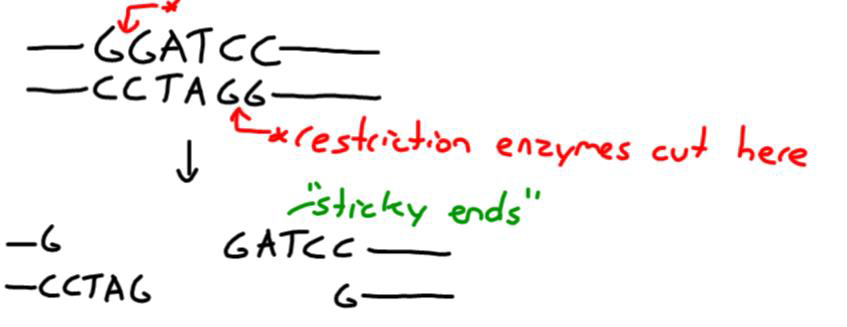 *
GGATCC
CCTAGG
*restriction enzymes cut here
"sticky ends"
G GATCC
CCTAG G